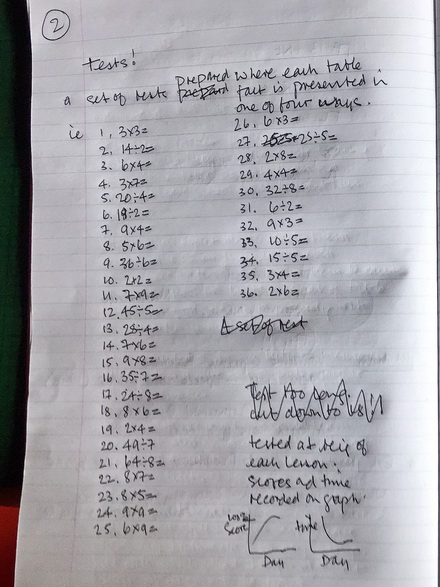 2
Tests!
a set of tests prepared where each table
fact is presented in
one of four ways.
ie
1. 3x3=
2. 14÷2=
3. 6x4=
4. 3x7=
5. 20÷4=
6. 18÷2=
7. 9x4=
8. 5x6=
9. 36÷6=
10. 2x2=
11. 7x9=
12. 45÷5=
13. 28÷4=
14. 7x6=
15. 9x8=
16. 35÷7=
17. 24÷8=
18. 8x6=
19. 2x4=
20. 49÷7
21. 64÷8=
22. 8x7=
23. 8x5=
24. 9x9=
25. 6x9=
26. 6x3=
27. 25÷5=
28. 2x8=
29. 4x4=
30. 32÷8=
31. 6÷2=
32. 9x3=
33. 10÷5=
34. 15÷5=
35. 3x4=
36. 2x6=
A set of test
Test too
cut down to
tested at of
each lesson.
scores and time
recorded on graph.
100%
score
Day
time
Day